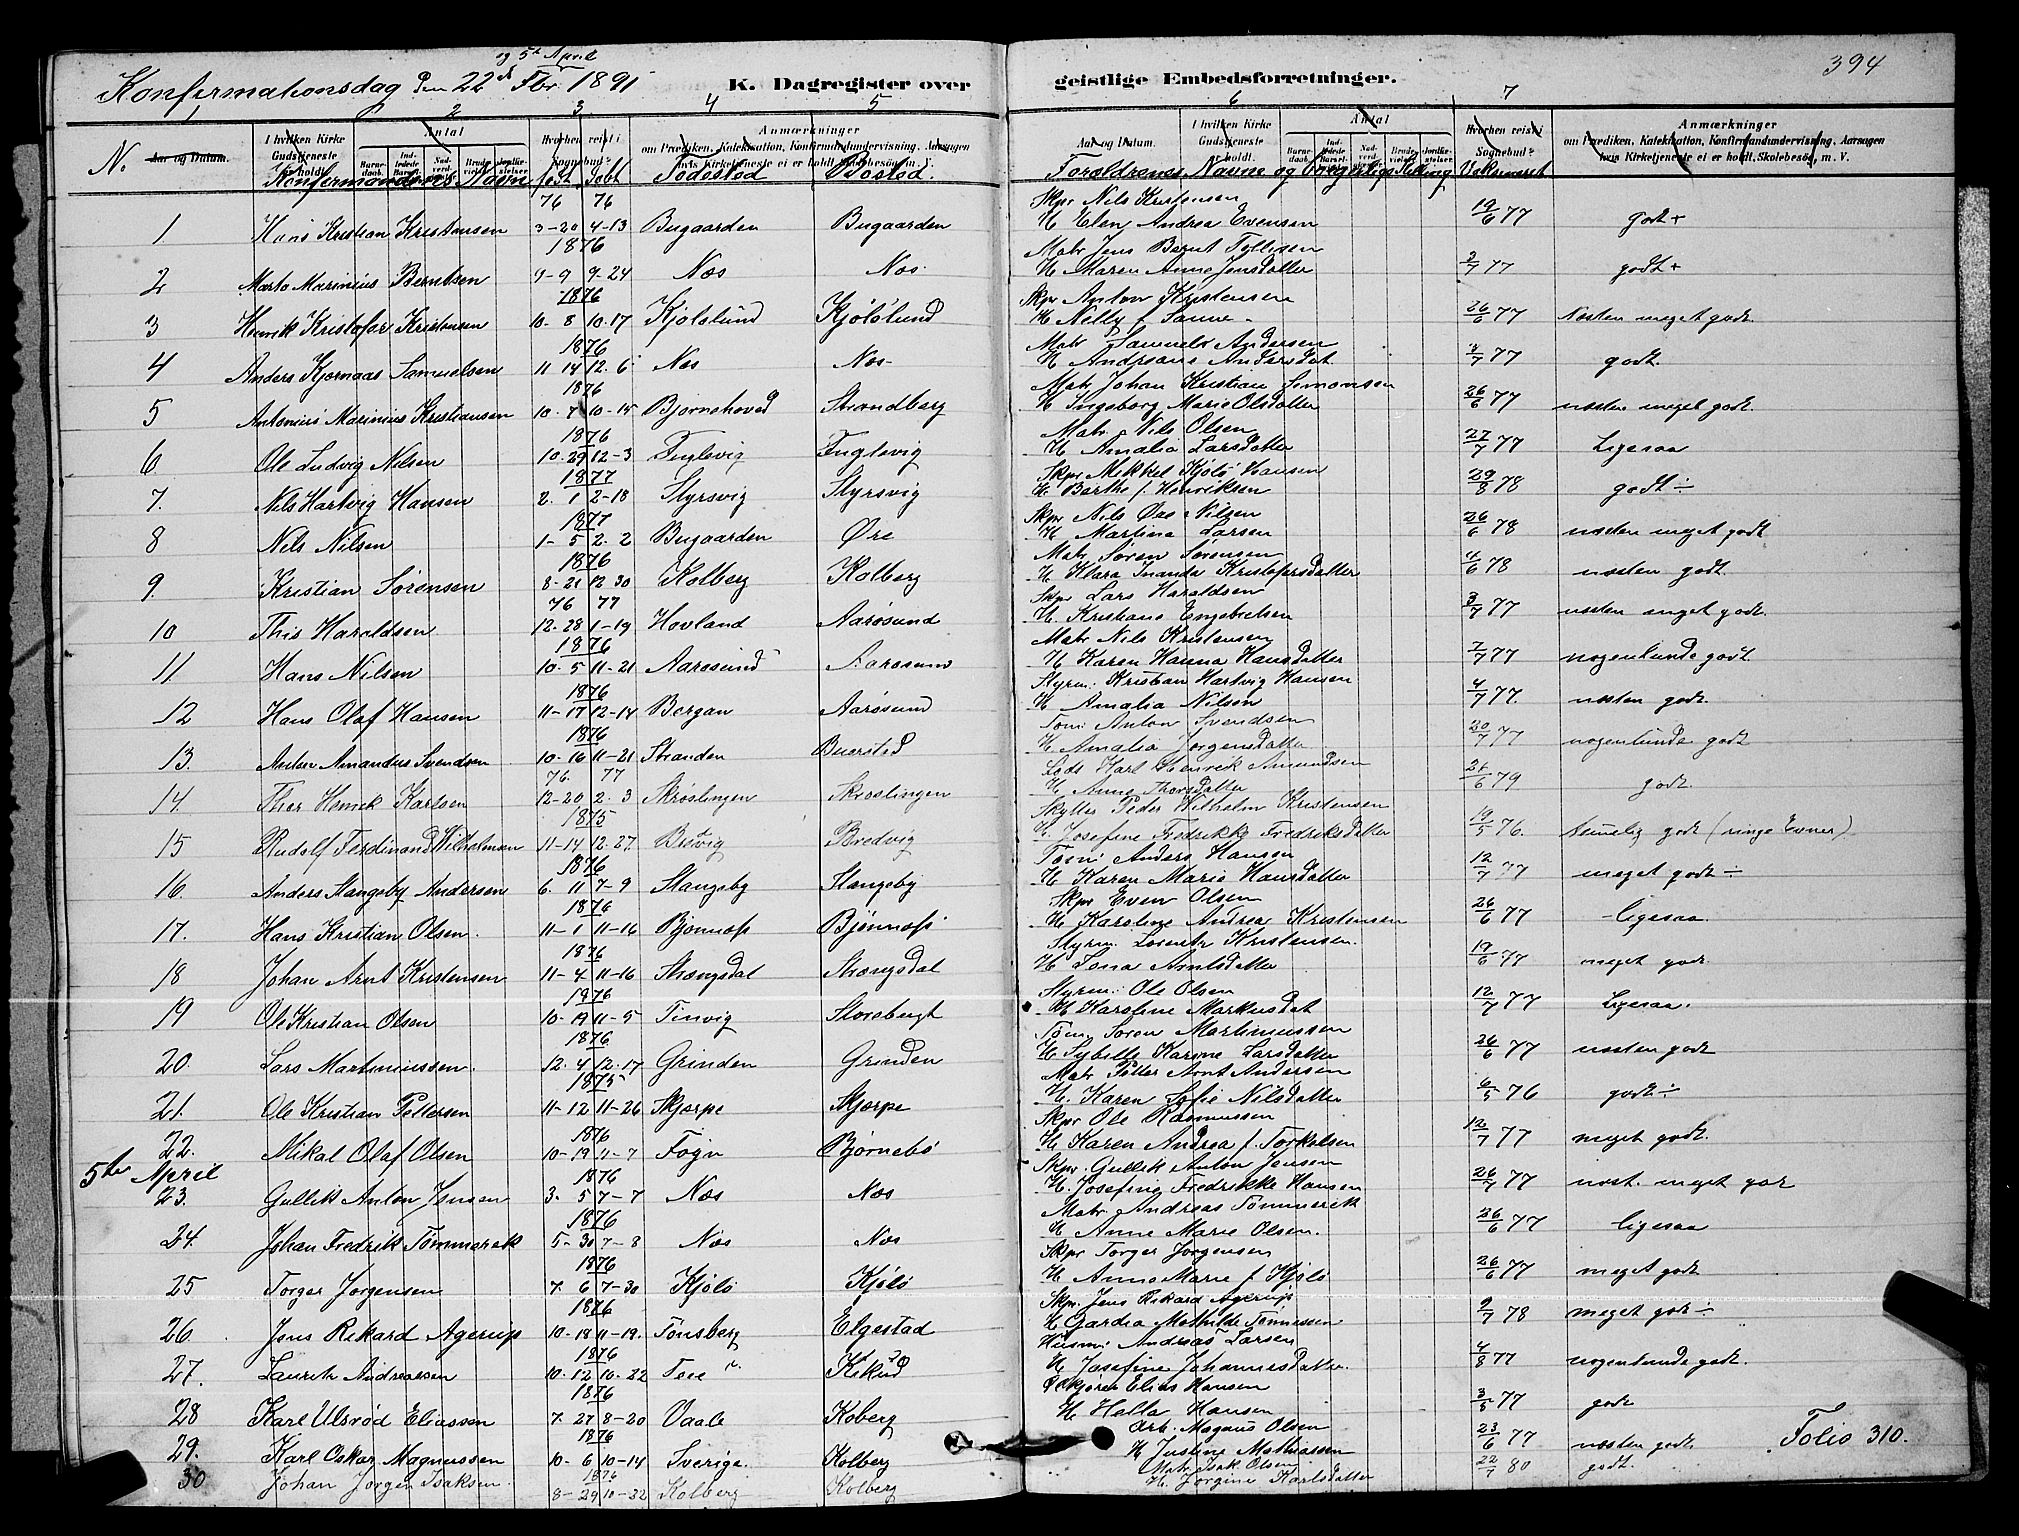 og 5te April
Konfirmationsdag den 22de Fbr. 1891
K. Dagregister over geistlige Embedsforretninger.
394
1 2 3 4 5 6 7
No Aar og Datum. I hvilken Kirke Gudstjeneste er holdt. Antal Barnedaab. Indledede Barselkvinder Nadverdgjæster Brudevielser Jordfæstelser Hvorhen reist i Sognebud? Anmærkninger om Prædiken, Katekisation, Konfirmandundervisning, Aarsagen hvis Kirketjeneste ei er holdt, Skolebesøg, m. V.
Aar og Datum. I hvilken Kirke Gudstjeneste er holdt. Antal Hvorhen reist i Sognebud? Anmærkninger om Prædiken, Katekisation, Konfirmandundervisning, Aarsagen hvis Kirketjeneste ei er holdt, Skolebesøg, m. V.
Konfirmandernes Navn født døbt Fødested Bosted. Forældrenes Navne og borgerlige Stilling Vaksineret
76 76 Skpr Nils Kristensen
1 Hans Kristian Kristensen 3-20 4-13 Bugaarden Bugaarden H Elen Andrea Evensen 19/6 77 godt +
1876 Matr Jens Bernt Tollefsen
2 Marto Marinius Berntsen 9-9 9-24 Næs Næs H Maren Anne Jensdatter 2/7 77 godt +
1876 Skpr Anton Kristensen
3 Henrik Kristofer Kristensen 10-8 10-17 Kjølølund Kjølølund H Nilly f Sanne 26/6 77 Næsten meget godt
1876 Matr Samuels Andersen
4 Anders Kjærnaas Samuelsen 11 14 12 6 Næs Næs H Andreane Andersdat 2/7 77 godt
1876 Matr Johan Kristian Simonsen
5 Antonius Marinius Kristiansen 10-7 10-15 Bjørnehoved Strandberg H Ingeborg Marie Olsdatter 26/6 77 næsten meget godt
1876 Matr Nils Olsen
6 Ole Ludvig Nilsen 10-29 12-3 Fuglevig Fuglevig H Amalia Larsdatter 27/7 77 Ligesaa
1877 Skpr Mikkel Kjølø Hansen
7. Nils Hartvig Hansen 2. 1 2-18 Styrsvig Styrsvig H Berthe f. Henriksen 29/8 78 godt ÷
1877 Skpr Nils Øas Nilsen
8 Nils Nilsen 1-5 2. 2 Bugaarden Øre H Martine Larsen 26/6 78 næsten meget godt
1876 Matr Søren Sørensen
9. Kristian Sørensen 8-21 12 30 Kolberg Kolberg H Klara Inanda Kristofersdatter 4/6 78 næsten godt
76 77 Skpr Lars Haraldsen
10 This Haroldsen 12-28 1-19 Hovland Aarøsund H. Kristiane Engebretsen 3/7 77 næsten meget godt.
1876 Matr Nils Kristensen
11. Hans Nilsen 10-5 11-21 Aarøsund Aarøsund H Karen Hanna Hansdatter 2/7 77 nogenlunde godt.
1876 Styrm. Kristian Hartvig Hansen
12 Hans Olaf Hansen 11-17 12-14 Bergan Aarøsund H Amalia Nilsen 4/7 77. næsten godt.
1876 Tøm: Anton Svendsen
13. Anton Amandus Svendsen 10-16 11-21 Stranden Buersted H. Amalia Jørgensdatter 20/7 77 nogenlunde godt
76. 77 Lods Karl Henrik Amundsen
14. Thor Henrik Karlsen 12-20 2. 3 Skrøslingen Skrøslingen H Anne Thorsdatter 21/6 79 godt.
1875 Skytter Peder Wilhelm Kristensen
15 Rudolf Ferdinand Wilhelmsen 11-14 12. 27 Bredvig H. Josefine Fredrikke Fredriksdatter 19/5 76. temelig godt (ringe Evner)
1876 Tøm: Anders Hansen
16. Anders Stangeby Andersen 6. 11 7-9 Stangeby Stangeby H Karen Marie Hansdatter 12/7 77 meget godt ÷
1876 Skpr Even Olsen
17. Hans Kristian Olsen. 11-1 11-16 Bjønnæss Bjønnæss H Karoline Andrea Kristensen 26/6 77 ligesaa.
1876 Styrm. Lorentz Kristensen.
18 Johan Arnt Kristensen 11-4 11-16 Strengsdal Strengsdal H Lona Arntsdatter 19/6 77 meget godt
1876 Styrm: Ole Olsen
19 Ole Kristian Olsen 10-19 11-5 Tinvig Storebergt H Karoline Markusdat 12/7 77 Ligesaa.
1876 Tøm, Søren Martinussen
20. Lars Martiniussen. 12. 4 12. 17 Grinden Grinden H Sybille Karine Larsdatter 26/6 77 næsten godt
1875 Matr Petter Arnt Andersen
21. Ole Kristian Pettersen 11-12 11-26 Skjerpe Skjerpe H. Karen Sofie Nilsdatter 6/5 76 godt ÷
1876 Skpr Ole Rasmussen
22. Mikal Olaf Olsen 10-19 11-7 Føgn Bjørnebø H Karen Andrea f. Torkelsen 12/7 77 meget godt.
5te April
1876 Skpr. Gullik Anton Jensen
23. Gullik Anton Jensen 3. 5 7-7 Næs Næs H. Josefine Fredrikke Hansen 26/7 77 næst. meget godt
1876 Matr Andreas Tømmerek
24. Johan Fredrik Tømmerek 5-30 7-8 Næs Næs H Anne Marie Olsen. 26/6 77 ligesaa
1876 Skpr Torger Jørgensen
25 Torger Jørgensen 7. 6 7-30 Kjølø Kjølø H Anne Marie f Kjølø 26/6 77 meget godt
1876 Skpr. Jens Rikard Agerup
26. Jens Rikard Agerup 10-18 11-19. Tønsberg Elgestad H Gardia Mathilde Tønnessen 9/7 78 meget godt ÷
1876 Husm: Andreas Larsen
27. Lauritz Andreassen 10. 12 10-22 Teie Kikud H Josefine Johannesdatter. 4/8 77 nogenlunde godt.
1876 Elias Hansen
28 Karl Ulsrød Eliassen 7. 27 8-20 Vaale Koberg H. Hella Hansen 3/5 77 godt
1876 Arb. Magnus Olsen
29. Karl Oskar Magnussen 10-6 10-14 Sverige. Kolberg H Justine Mathiassen 23/6 77 næsten godt. Folio 310.
1876 Matr Isak Olsen
30 Johan Jørgen Isaksen. 8-29 10-22 Kolberg Kolberg H. Jørgine Karlsdatter 22/7 80 godt.